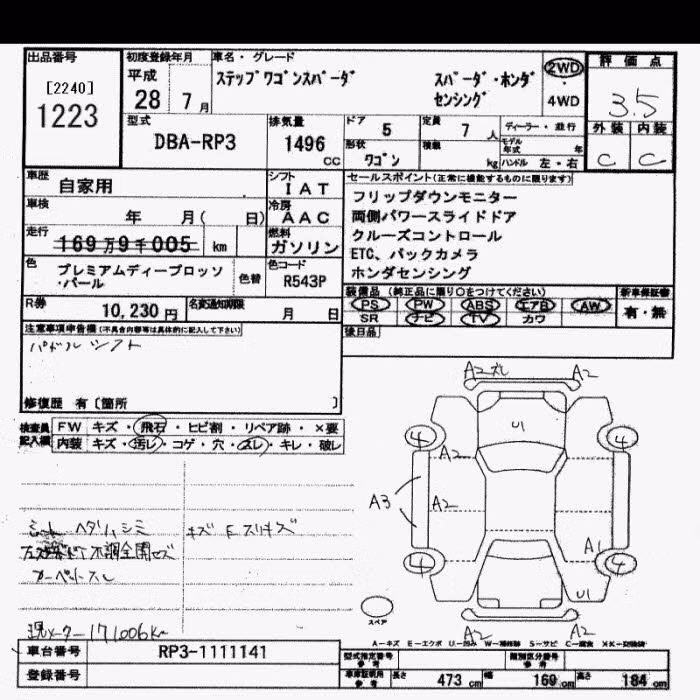 出品番号
[2240]
1223
初度登録年月
平成
28 7月
車名・グレード
ステップワゴンスパーダ
スパーダ・ホンダ
センシング
2WD
・
4WD
評価点
3.5
外装 内装
C C
型式
DBA-RP3
排気量
1496
cc
ドア
5
定員
7 人
形状
ワゴン
積載
kg
ディーラー・並行
モデル年式 年
ハンドル 左・右
車歴
自家用
シフト
IAT
車検
年 月( 日)
冷房
AAC
走行
169万9千005 km
燃料
ガソリン
色
プレミアムディープロッソ
・パール
色替
色コード
R543P
R券
10,230円
名変通知期限
月 日
セールスポイント(正常に機能するものに限ります)
フリップダウンモニター
両側パワースライドドア
クルーズコントロール
ETC、バックカメラ
ホンダセンシング
装備品 (純正品に限り○をつけてください)
PS PW ABS エアB AW
SR ナビ TV カワ
新車保証書
有・無
後日品
注意事項申告欄(不具合内容等は具体的に記入して下さい)
パドルシフト
修復歴 有〔箇所 〕
検査員
記入欄
FW キズ・飛石・ヒビ割・リペア跡・×要
内装 キズ・汚レ・コゲ・穴・スレ・キレ・破レ
シート ヘタリ、シミ
キズ スリキズ
不調全開せず
カーペットスレ
現メーター171006km
A2 ズレ A2
U1
4 4
A2
A3 A2
A1
4 4
U1
A2 A2
スペア
A-キズ E-エクボ U-凹み W-補修跡 S-サビ C-腐食
車台番号
RP3-1111141
登録番号
型式指定番号
参考
類別区分番号
参考
車庫証明用
参考
長さ 473 cm 幅 169 cm 高さ 184 cm